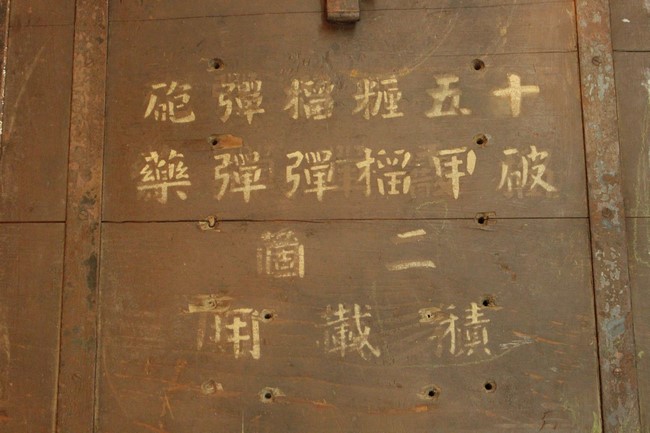 十五糎榴彈砲
破甲榴彈彈藥
二箇
積載用